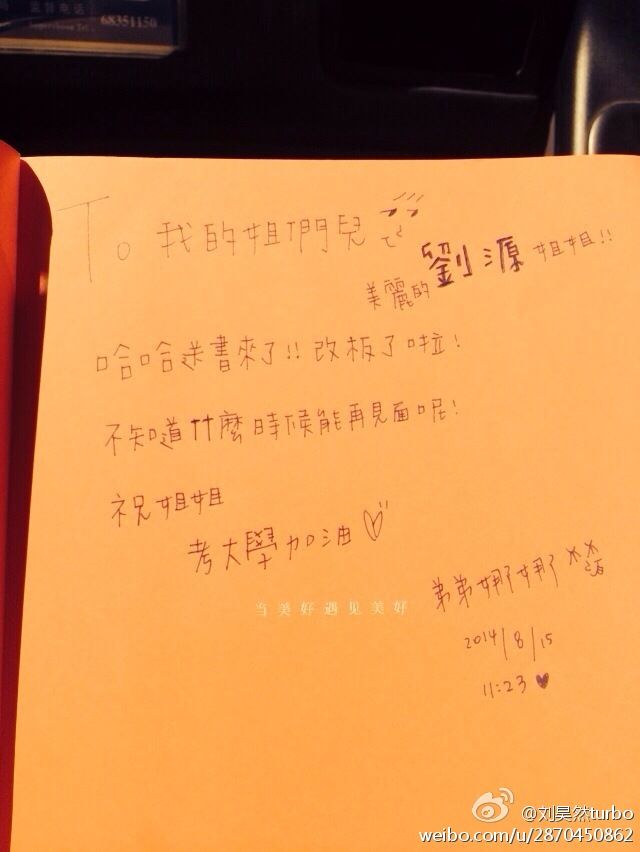 监督电话
68351150
Supervision Tel
To 我的姐們兒
美麗的劉源 姐姐!!
哈哈送書來了!!改板了啦!
不知道什麼時候能再見面呢!
祝姐姐
考大學加油
当美好遇见美好
弟弟娜娜
2014/8/15
11:23
@刘昊然turbo
weibo.com/u/2870450862